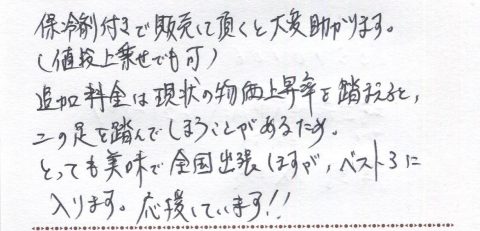 保冷剤付きで販売して頂くと大変助かります。
(値段上乗せでも可)
追加料金は現状の物価上昇率を踏まえると,
二の足を踏んでしまうことがあるため。
とっても美味で全国出張しますが,ベスト3に
入ります。応援しています!!